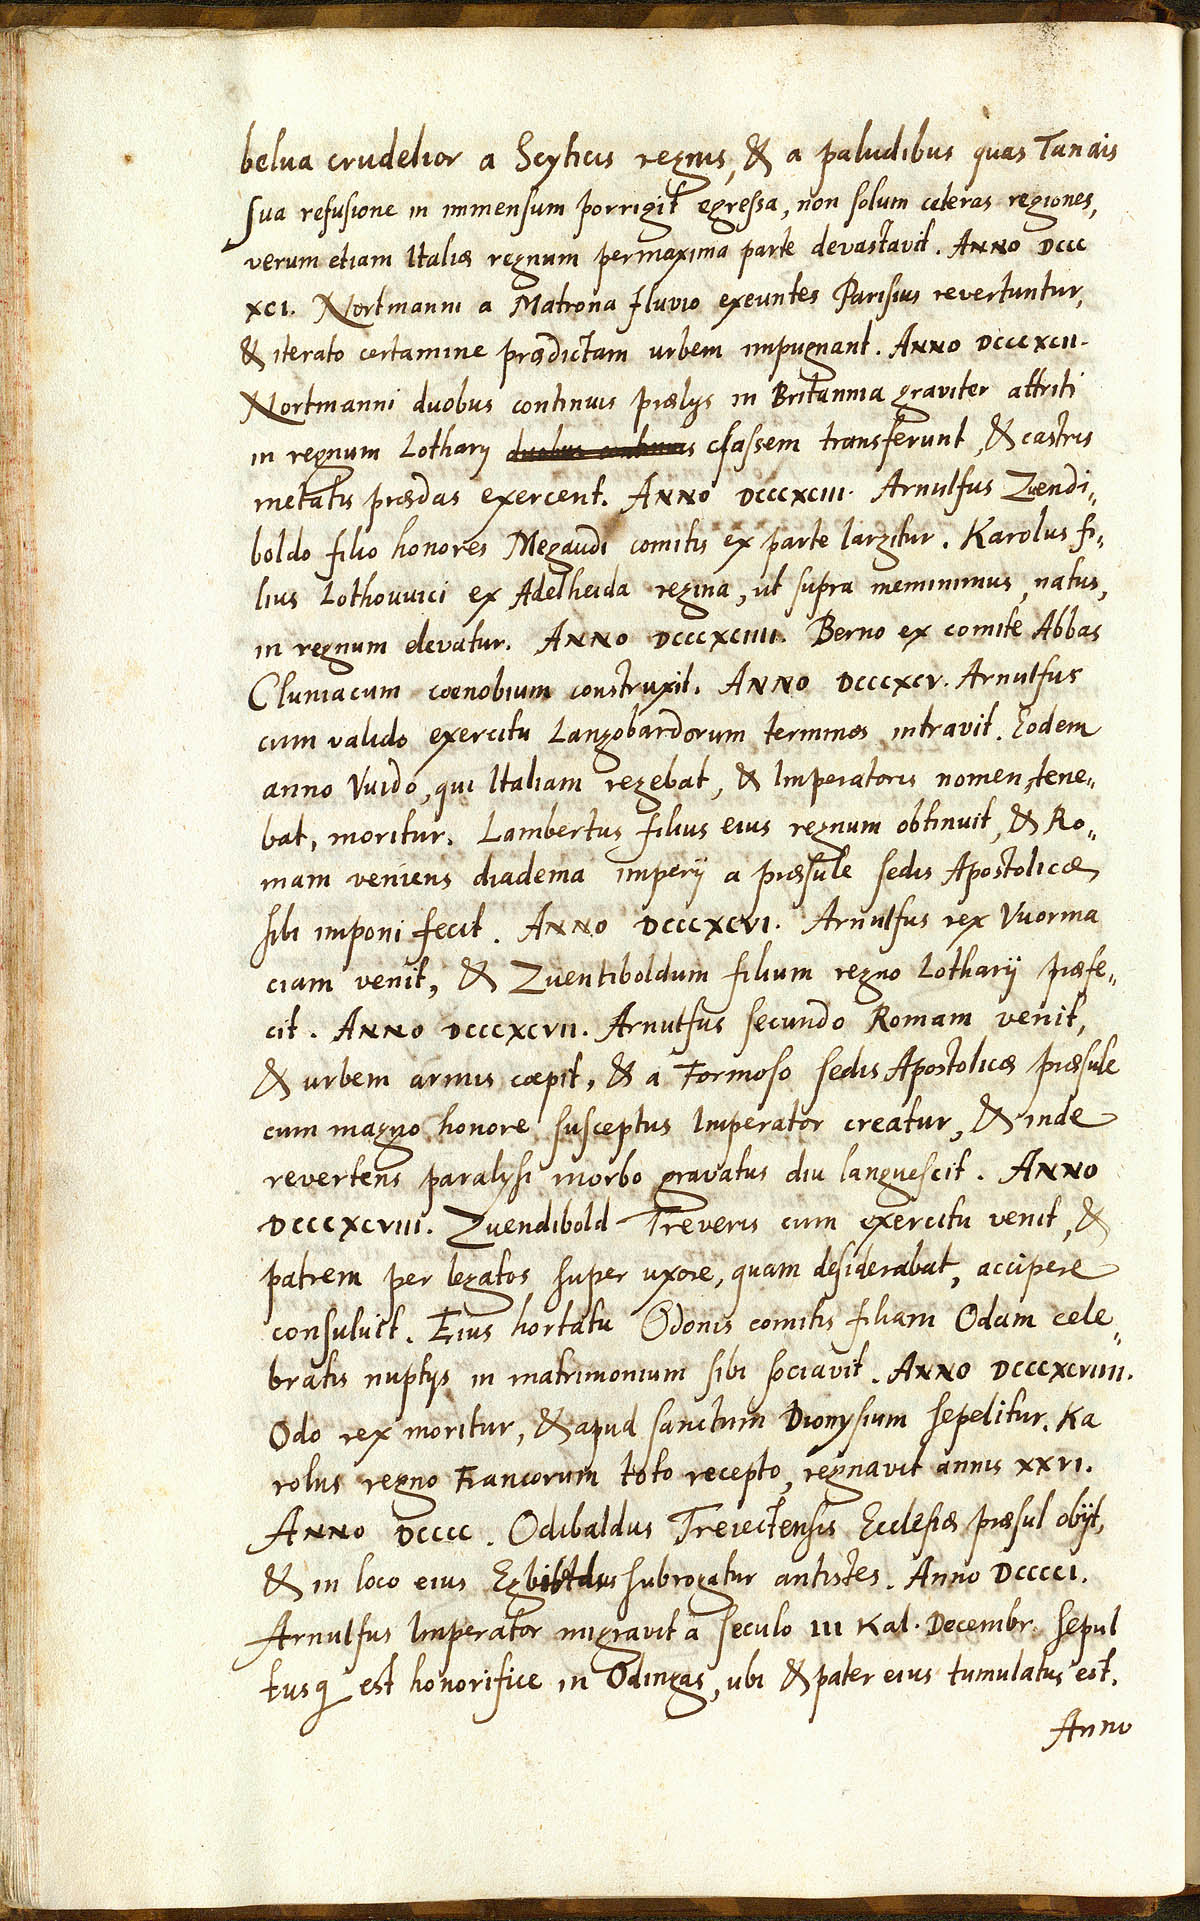 belua crudelior a Scyticis regnis, & a paludibus quas Tanais
sua refusione in immensum porrigit egressa, non solum cæteras regiones,
verum etiam Italiæ regnum permaxima parte devastavit. ANNO DCCC
XCI. Nortmanni a Matrona fluvio exeuntes Parisius revertuntur,
& iterato certamine prædictam urbem impugnant. ANNO DCCCXCII.
Nortmanni duobus continuis prælijs in Britannia graviter attriti
in regnum Lotharij duobus continuis classem transferunt, & castris
metatis prædas exercent. ANNO DCCCXCIII. Arnulfus Zuendi„
boldo filio honores Megaudi comitis ex parte largitur. Karolus fi„
lius Lothouuici ex Adelheida regina, ut supra meminimus, natus,
in regnum elevatur. ANNO DCCCXCIIII. Berno ex comite Abbas
Cluniacum cœnobium construxit. ANNO DCCCXCV. Arnulfus
cum valido exercitu Langobardorum terminos intravit. Eodem
anno Vuido, qui Italiam regebat, & Imperatoris nomen tene„
bat, moritur. Lambertus filius eius regnum obtinuit, & Ro„
mam veniens diadema imperij a præsule sedis Apostolicæ
sibi imponi fecit. ANNO DCCCXCVI. Arnulfus rex Vuorma
ciam venit, & Zuentiboldum filium regno Lotharij præfe„
cit. ANNO DCCCXCVII. Arnulfus secundo Romam venit,
& urbem armis cœpit, & a Formoso sedis Apostolicæ præsule
cum magno honore susceptus Imperator creatur, & inde
revertens paralysi morbo gravatus diu languescit. ANNO
DCCCXCVIII. Zuendibold Treveris cum exercitu venit, &
patrem per legatos super uxore, quam desiderabat, accipere
consuluit. Eius hortatu Odonis comitis filiam Odam cele„
bratis nuptijs in matrimonium sibi sociavit. ANNO DCCCXCVIIII.
Odo rex moritur, & apud sanctum Dionysium sepelitur. Ka
rolus regno Francorum toto recepto, regnavit annis XXVI.
ANNO DCCCC. Odibaldus Treiectensis Ecclesiæ præsul obijt,
& in loco eius subrogatur antistes. Anno DCCCCI.
Arnulfus Imperator migravit a seculo III Kal. Decembr. sepul
tusq est honorifice in Odingas, ubi & pater eius tumulatus est.
Anno